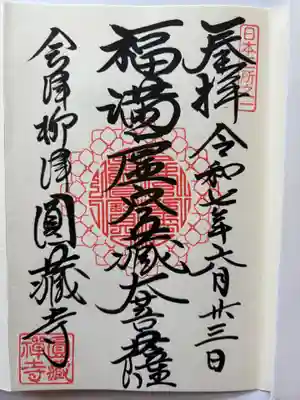 日本三所之一
奉拝 令和七年六月廿三日
福満虚空藏大菩薩
会津柳津 圓藏寺
圓藏
禅寺